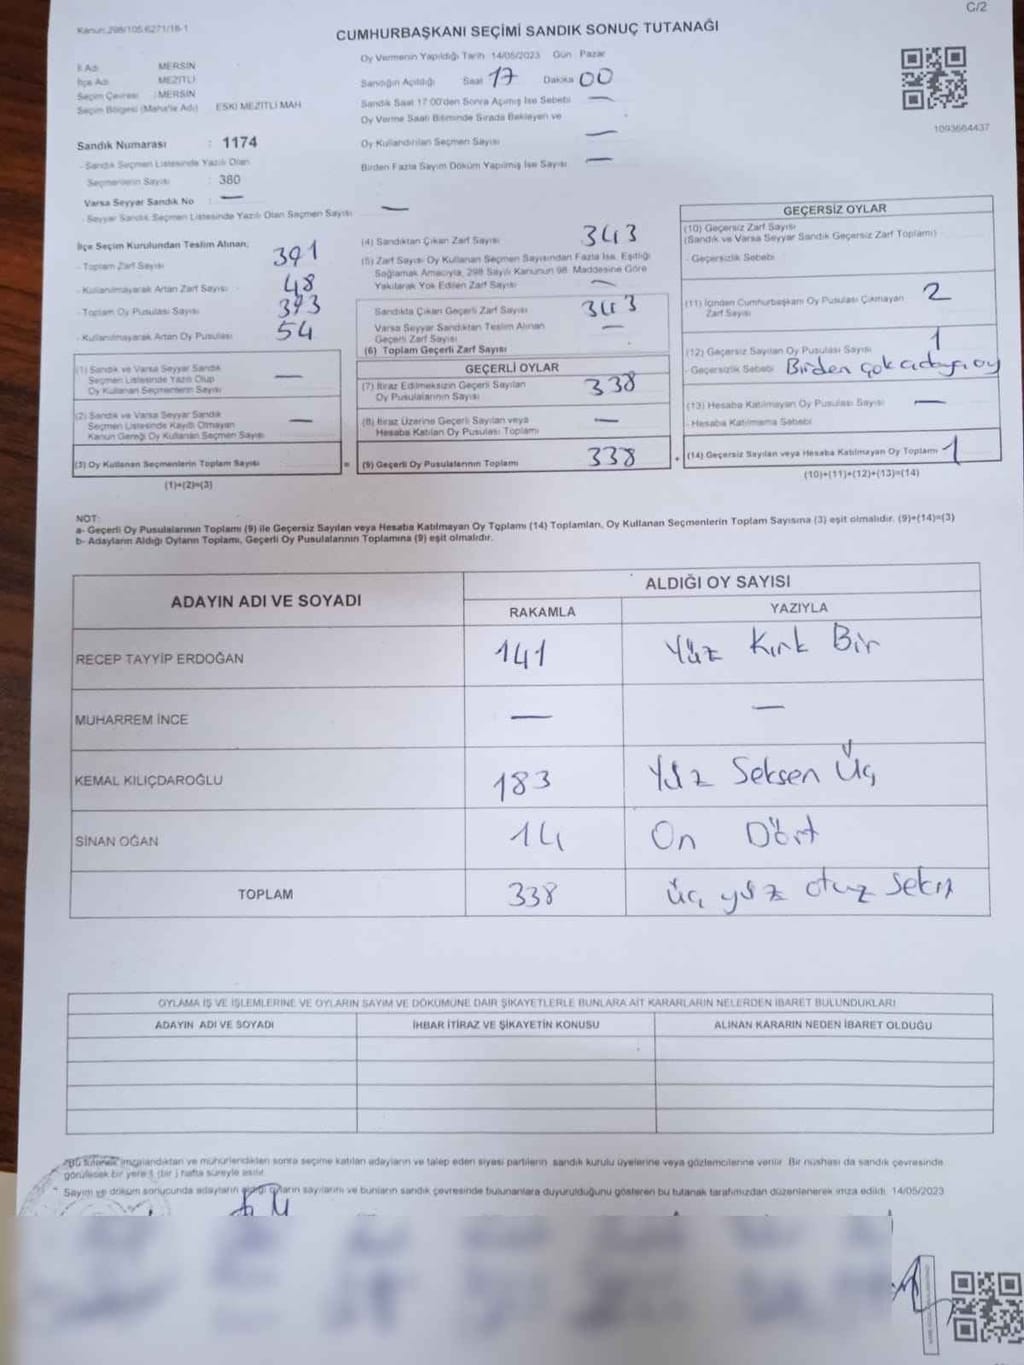 C/2
Kanun:298/105.6271/18-1
CUMHURBAŞKANI SEÇİMİ SANDIK SONUÇ TUTANAĞI
İl Adı : MERSİN
İlçe Adı : MEZİTLİ
Seçim Çevresi : MERSİN
Seçim Bölgesi (Mahalle Adı) : ESKİ MEZİTLİ MAH
Sandık Numarası : 1174
- Sandık Seçmen Listesinde Yazılı Olan
Seçmenlerin Sayısı : 380
Varsa Seyyar Sandık No : —
- Seyyar Sandık Seçmen Listesinde Yazılı Olan Seçmen Sayısı —
Oy Vermenin Yapıldığı Tarih 14/05/2023 Gün : Pazar
Sandığın Açıldığı Saat 17 Dakika 00
Sandık Saat 17:00'den Sonra Açılmış İse Sebebi —
Oy Verme Saati Bitiminde Sırada Bekleyen ve
Oy Kullandırılan Seçmen Sayısı —
Birden Fazla Sayım Döküm Yapılmış İse Sayısı —
1093664437
İlçe Seçim Kurulundan Teslim Alınan;
- Toplam Zarf Sayısı 391
- Kullanılmayarak Artan Zarf Sayısı : 48
- Toplam Oy Pusulası Sayısı : 393
- Kullanılmayarak Artan Oy Pusulası : 54
(1) Sandık ve Varsa Seyyar Sandık
Seçmen Listesinde Yazılı Olup
Oy Kullanan Seçmenlerin Sayısı —
(2) Sandık ve Varsa Seyyar Sandık
Seçmen Listesinde Kayıtlı Olmayan
Kanun Gereği Oy Kullanan Seçmen Sayısı —
(3) Oy Kullanan Seçmenlerin Toplam Sayısı
(1)+(2)=(3)
(4) Sandıktan Çıkan Zarf Sayısı 343
(5) Zarf Sayısı Oy Kullanan Seçmen Sayısından Fazla İse, Eşitliği
Sağlamak Amacıyla, 298 Sayılı Kanunun 98. Maddesine Göre
Yakılarak Yok Edilen Zarf Sayısı —
Sandıkta Çıkan Geçerli Zarf Sayısı 343
Varsa Seyyar Sandıktan Teslim Alınan
Geçerli Zarf Sayısı —
(6) Toplam Geçerli Zarf Sayısı
GEÇERLİ OYLAR
(7) İtiraz Edilmeksizin Geçerli Sayılan
Oy Pusulalarının Sayısı 338
(8) İtiraz Üzerine Geçerli Sayılan veya
Hesaba Katılan Oy Pusulası Toplamı —
= (9) Geçerli Oy Pusulalarının Toplamı 338 +
GEÇERSİZ OYLAR
(10) Geçersiz Zarf Sayısı
(Sandık ve Varsa Seyyar Sandık Geçersiz Zarf Toplamı)
- Geçersizlik Sebebi
(11) İçinden Cumhurbaşkanı Oy Pusulası Çıkmayan
Zarf Sayısı 2
(12) Geçersiz Sayılan Oy Pusulası Sayısı 1
- Geçersizlik Sebebi Birden çok adaya oy
(13) Hesaba Katılmayan Oy Pusulası Sayısı —
- Hesaba Katılmama Sebebi
(14) Geçersiz Sayılan veya Hesaba Katılmayan Oy Toplamı 1
(10)+(11)+(12)+(13)=(14)
NOT:
a- Geçerli Oy Pusulalarının Toplamı (9) ile Geçersiz Sayılan veya Hesaba Katılmayan Oy Toplamı (14) Toplamları, Oy Kullanan Seçmenlerin Toplam Sayısına (3) eşit olmalıdır. (9)+(14)=(3)
b- Adayların Aldığı Oyların Toplamı, Geçerli Oy Pusulalarının Toplamına (9) eşit olmalıdır.
ADAYIN ADI VE SOYADI
ALDIĞI OY SAYISI
RAKAMLA YAZIYLA
RECEP TAYYİP ERDOĞAN 141 Yüz Kırk Bir
MUHARREM İNCE — —
KEMAL KILIÇDAROĞLU 183 Yüz Seksen Üç
SİNAN OĞAN 14 On Dört
TOPLAM 338 üç yüz otuz sekiz
OYLAMA İŞ VE İŞLEMLERİNE VE OYLARIN SAYIM VE DÖKÜMÜNE DAİR ŞİKAYETLERLE BUNLARA AİT KARARLARIN NELERDEN İBARET BULUNDUKLARI
ADAYIN ADI VE SOYADI İHBAR İTİRAZ VE ŞİKAYETİN KONUSU ALINAN KARARIN NEDEN İBARET OLDUĞU
*Bu tutanak imzalandıktan ve mühürlendikten sonra seçime katılan adayların ve talep eden siyasi partilerin sandık kurulu üyelerine veya gözlemcilerine verilir. Bir nüshası da sandık çevresinde
görülecek bir yere 1 (bir ) hafta süreyle asılır.
* Sayım ve döküm sonucunda adayların aldığı oyların sayılarını ve bunların sandık çevresinde bulunanlara duyurulduğunu gösteren bu tutanak tarafımızdan düzenlenerek imza edildi. 14/05/2023